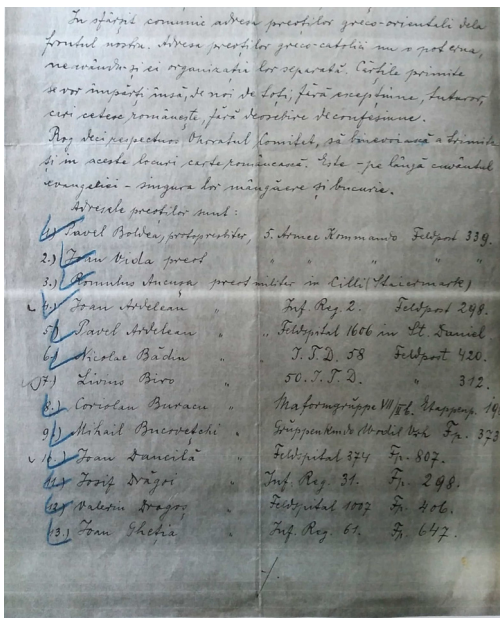 In sfârșit comunic adresa preoților greco-orientali dela
frontul nostru. Adresa preoților greco-catolici nu o pot
neavându-și ei organizația lor separată. Cărțile primite
se vor împărți însă, de noi de toți, fără excepțiune, tuturor,
cari cetesc românește, fără deosebire de confesiune.
Rog deci respectuos Onoratul Comitet, să binevoiască a trimite
și in aceste locuri carte românească. Este - pe lângă cuvântul
evangeliei - singura lor mângâere și bucurie.
Adresele preoților sunt:
1.) Pavel Boldea, protopresbiter, 5. Armee Kommando Feldpost 339.
2.) Ioan Vida preot " " " "
3.) Romulus Ancușa preot militar in Cilli (Steiermark)
4.) Ioan Ardelean " Inf. Reg. 2. Feldpost 298.
5.) Pavel Ardelean " " Feldspital 1606 in St. Daniel
6.) Nicolae Bădin " I.T.D. 58 Feldpost 420.
7.) Liviu Biro 50. I.T.D. " 312.
8.) Coriolan Buracu " VII Etappenp.
9.) Mihail Bucovețchi " Gruppenkmdo Fp. 373
10.) Ioan Dăncilă " Feldspital 374 Fp. 807.
11.) Iosif Drăgoi " Inf. Reg. 31. Fp. 298.
12.) Valeriu Dragoș " Feldspital 1007 Fp. 406.
13.) Ioan Ghetia " Inf. Reg. 61. Fp. 647.
./.